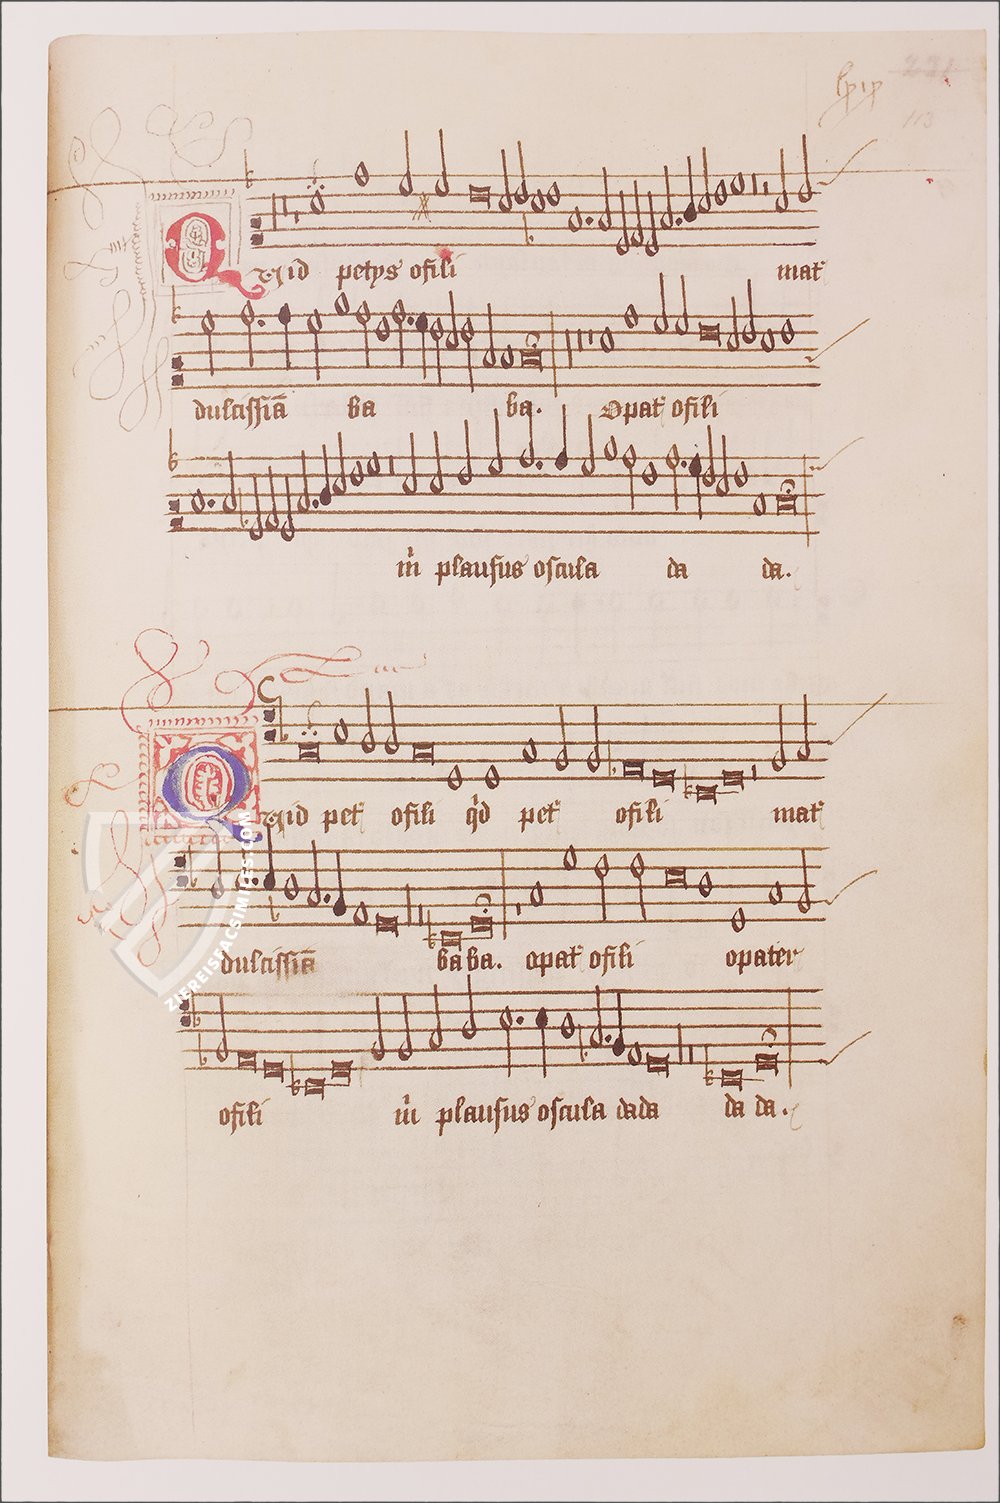 113
Quid petys ofili mat̃
dulcissiã ba ba. Opat̃ ofili
m̃ plausus oscula da da.
C
Quid pet̃ ofili q̃d pet̃ ofili mat̃
dulcissiã ba ba. opat̃ ofili opater
ofili m̃ plausus oscula dada da da.
ZIEREISFACSIMILES.COM